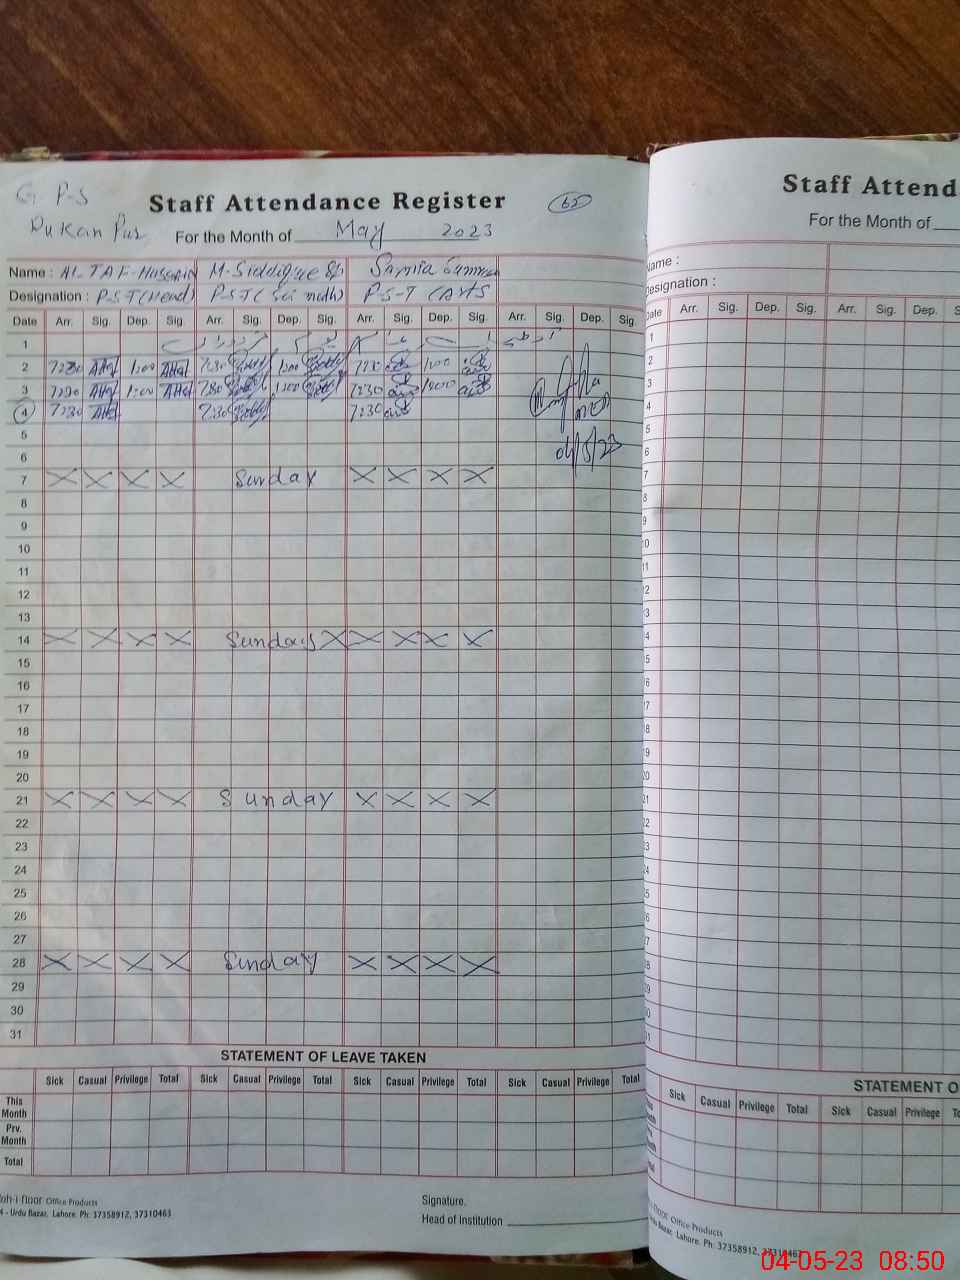 G. P-S
Staff Attendance Register
65
Dukan Pur
For the Month of May 2023
Name : AL-TAF-Hussain M-Siddique Samia
Designation : P-S-T (Head) P-S-T ( Sci math) P-S-T (Arts
Date Arr. Sig. Dep. Sig. Arr. Sig. Dep. Sig. Arr. Sig. Dep. Sig. Arr. Sig. Dep. Sig.
1
2 7:30 Altaf 1:00 Altaf 7:30 1:00 7:30 1:00
3 7:30 Altaf 1:00 Altaf 7:30 1:00 7:30 1:00
4 7:30 Altaf 7:30 7:30
04/5/23
5
6
7 X X X X Sunday X X X X
8
9
10
11
12
13
14 X X X X Sunday X X X X X
15
16
17
18
19
20
21 X X X X Sunday X X X X
22
23
24
25
26
27
28 X X X X Sunday X X X X
29
30
31
STATEMENT OF LEAVE TAKEN
Sick Casual Privilege Total Sick Casual Privilege Total Sick Casual Privilege Total Sick Casual Privilege Total
This Month
Prv. Month
Total
oh-i-noor Office Products
4 - Urdu Bazar, Lahore. Ph: 37358912, 37310463
Signature.
Head of Institution
Staff Attend
For the Month of
Name :
Designation :
Date Arr. Sig. Dep. Sig. Arr. Sig. Dep. S
1
2
3
4
5
6
7
8
9
0
1
2
3
4
5
6
7
8
9
0
1
2
3
4
5
6
7
8
9
0
1
STATEMENT O
Sick Casual Privilege Total Sick Casual Privilege To
noor Office Products
Urdu Bazar, Lahore. Ph: 37358912, 37310463
04-05-23 08:50